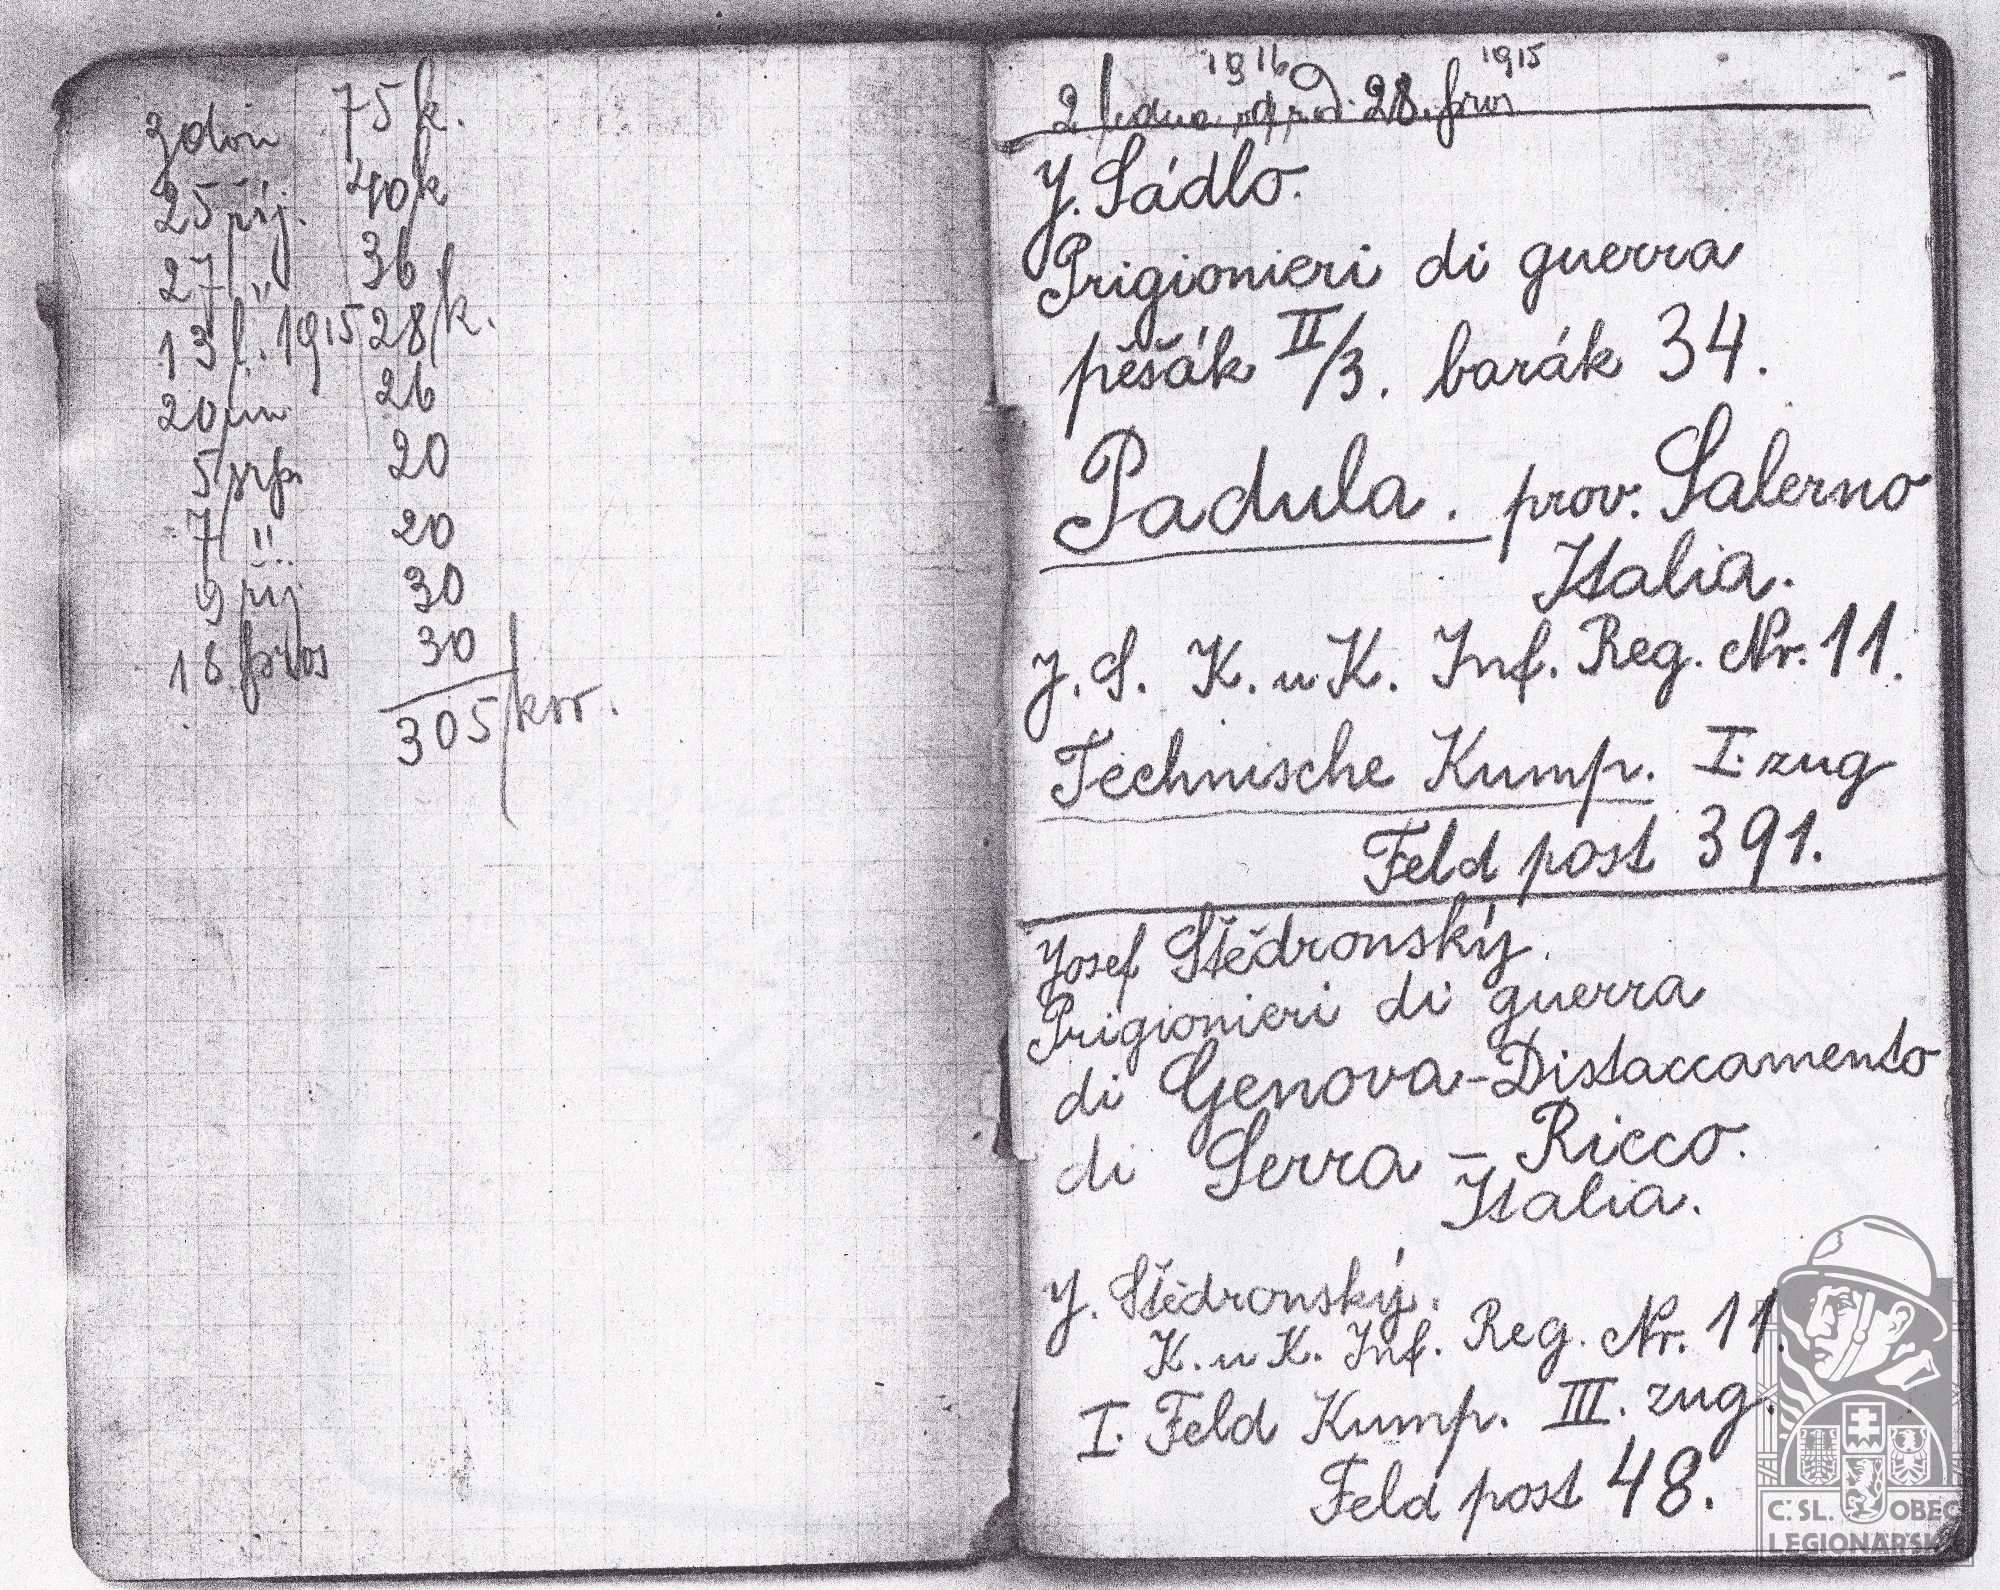 z dom 75 k.
25 říj. 40 k
27 " 36
13 l. 1915 28 k.
20 un 26
5 srp 20
7 " 20
9 říj 30
18 pros 30
305 kor.
1916 1915
2 ledna od 28. pros
J. Sádlo.
Prigionieri di guerra
pěšák II/3. barák 34.
Padula. prov. Salerno
Italia.
J. S. K. u K. Inf. Reg. Nr. 11.
Technische Kump. I. zug
Feld post 391.
Josef Stědronský.
Prigionieri di guerra
di Genova - Distaccamento
di Serra - Ricco.
Italia.
J. Stědronský.
K. u K. Inf. Reg. Nr. 11.
I. Feld Kump. III. zug.
Feld post 48.
Č. SL. OBEC
LEGIONÁŘSKÁ